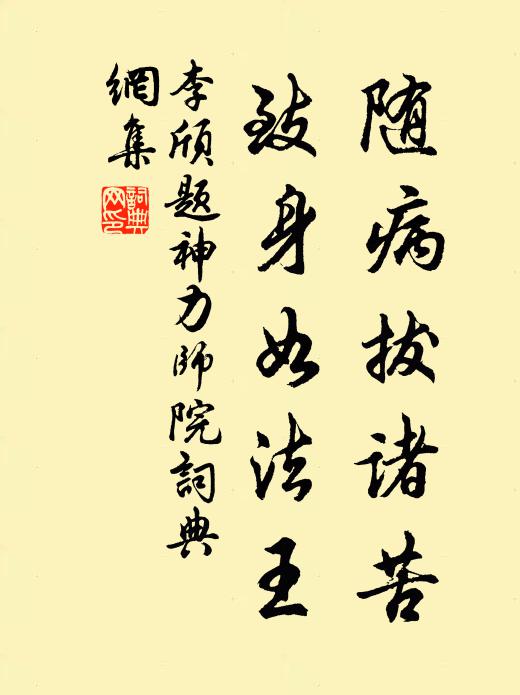 随病拔诸苦
致身如法王
李颀题神力师院詞典
網集
詞典網印